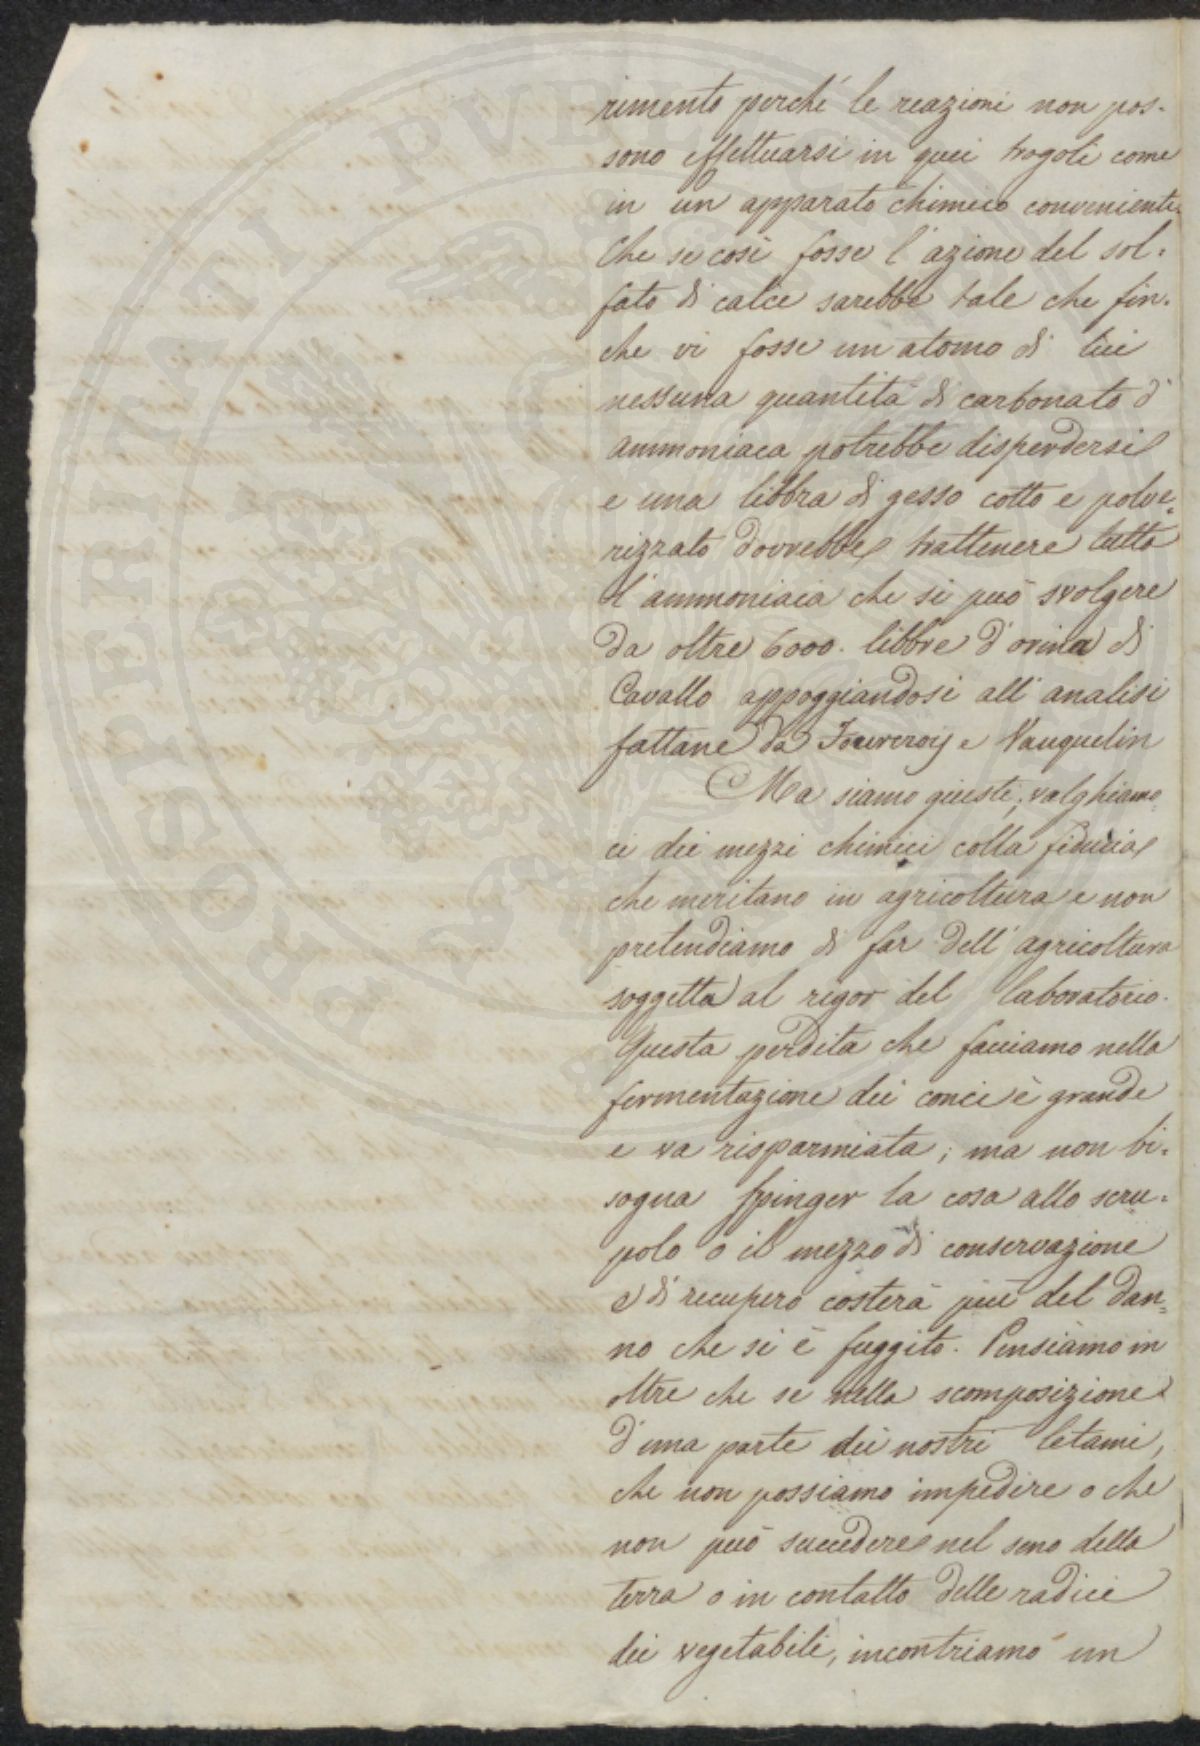 rimento perché le reazioni non pos-
sono effettuarsi in quei trogoli come
in un apparato chimico conveniente.
Che se così fosse l'azione del sol-
fato di calce sarebbe tale che fin-
che vi fosse un atomo di lui
nessuna quantità di carbonato d'
ammoniaca potrebbe disperdersi
e una libbra di gesso cotto e polve-
rizzato dovrebbe trattenere tutta
l'ammoniaca che si può svolgere
da oltre 6000. libbre d'orina di
Cavallo appoggiandosi all'analisi
fattane da Fourcroy e Vauquelin
Ma siamo giusti; valghiamo-
ci dei mezzi chimici colla fiducia
che meritano in agricoltura e non
pretendiamo di far dell'agricoltura
soggetta al rigor del laboratorio.
Questa perdita che facciamo nella
fermentazione dei conci è grande
e va risparmiata; ma non bi-
sogna spinger la cosa allo scru-
polo o il mezzo di conservazione
e di recupero costerà più del dan-
no che si è fuggito. Pensiamo in
oltre che se nella scomposizione
d'una parte dei nostri letami,
che non possiamo impedire o che
non può succedere nel seno della
terra o in contatto delle radici
dei vegetabili, incontriamo un
PROSPERITATI PVBLICAE